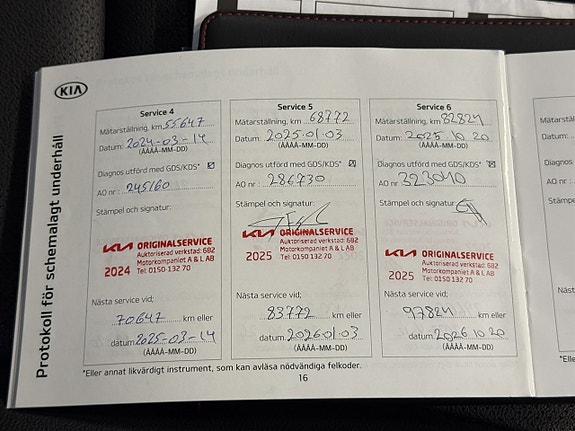 KIA
Protokoll för schemalagt underhåll
Service 4
Mätarställning, km 55647
Datum: 2024-03-14
(ÅÅÅÅ-MM-DD)
Diagnos utförd med GDS/KDS*
AO nr: 245160
Stämpel och signatur:
KIA ORIGINALSERVICE
Auktoriserad verkstad: 682
Motorkompaniet A & L AB
2024 Tel: 0150 132 70
Nästa service vid;
70647 km eller
datum 2025-03-14
(ÅÅÅÅ-MM-DD)
Service 5
Mätarställning, km 68772
Datum: 2025.01.03
(ÅÅÅÅ-MM-DD)
Diagnos utförd med GDS/KDS*
AO nr: 286730
Stämpel och signatur:
KIA ORIGINALSERVICE
Auktoriserad verkstad: 682
Motorkompaniet A & L AB
2025 Tel: 0150 132 70
Nästa service vid;
83772 km eller
datum 2026.01.03
(ÅÅÅÅ-MM-DD)
Service 6
Mätarställning, km 82824
Datum: 2025 10 20
(ÅÅÅÅ-MM-DD)
Diagnos utförd med GDS/KDS*
AO nr 323040
Stämpel och signatur:
KIA ORIGINALSERVICE
Auktoriserad verkstad: 682
Motorkompaniet A & L AB
2025 Tel: 0150 132 70
Nästa service vid;
97824 km eller
datum 2026 10 20
(ÅÅÅÅ-MM-DD)
*Eller annat likvärdigt instrument, som kan avläsa nödvändiga felkoder.
16